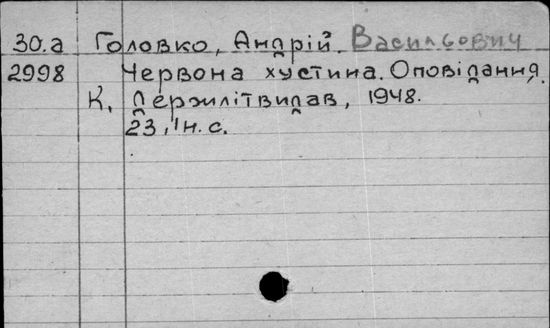 30.а Головко, Андрій Васильович
2998 Червона хустина. Оповідання.
К, Держлітвидав, 1948.
23, 1н. с.